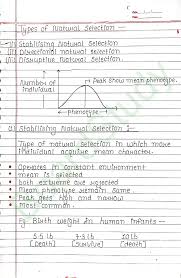 Types of Natural Selection :-
(i) Stabilising Natural Selection
(ii) Directional Natural Selection
(iii) Disruptive Natural Selection
Number of
Individual
Peak Show mean phenotype.
phenotype
Stabilising Natural Selection :-
Type of natural selection in which more
individual acquire mean character.
Operates in constant environment
mean is selected
both extreme are rejected
Mean phenotype remain same
Peak gets high and narrow
Most common.
Eg. Birth weight in human infants -
5.5 lb
7-8 lb
10 lb
[Death]
[Survive]
[death]